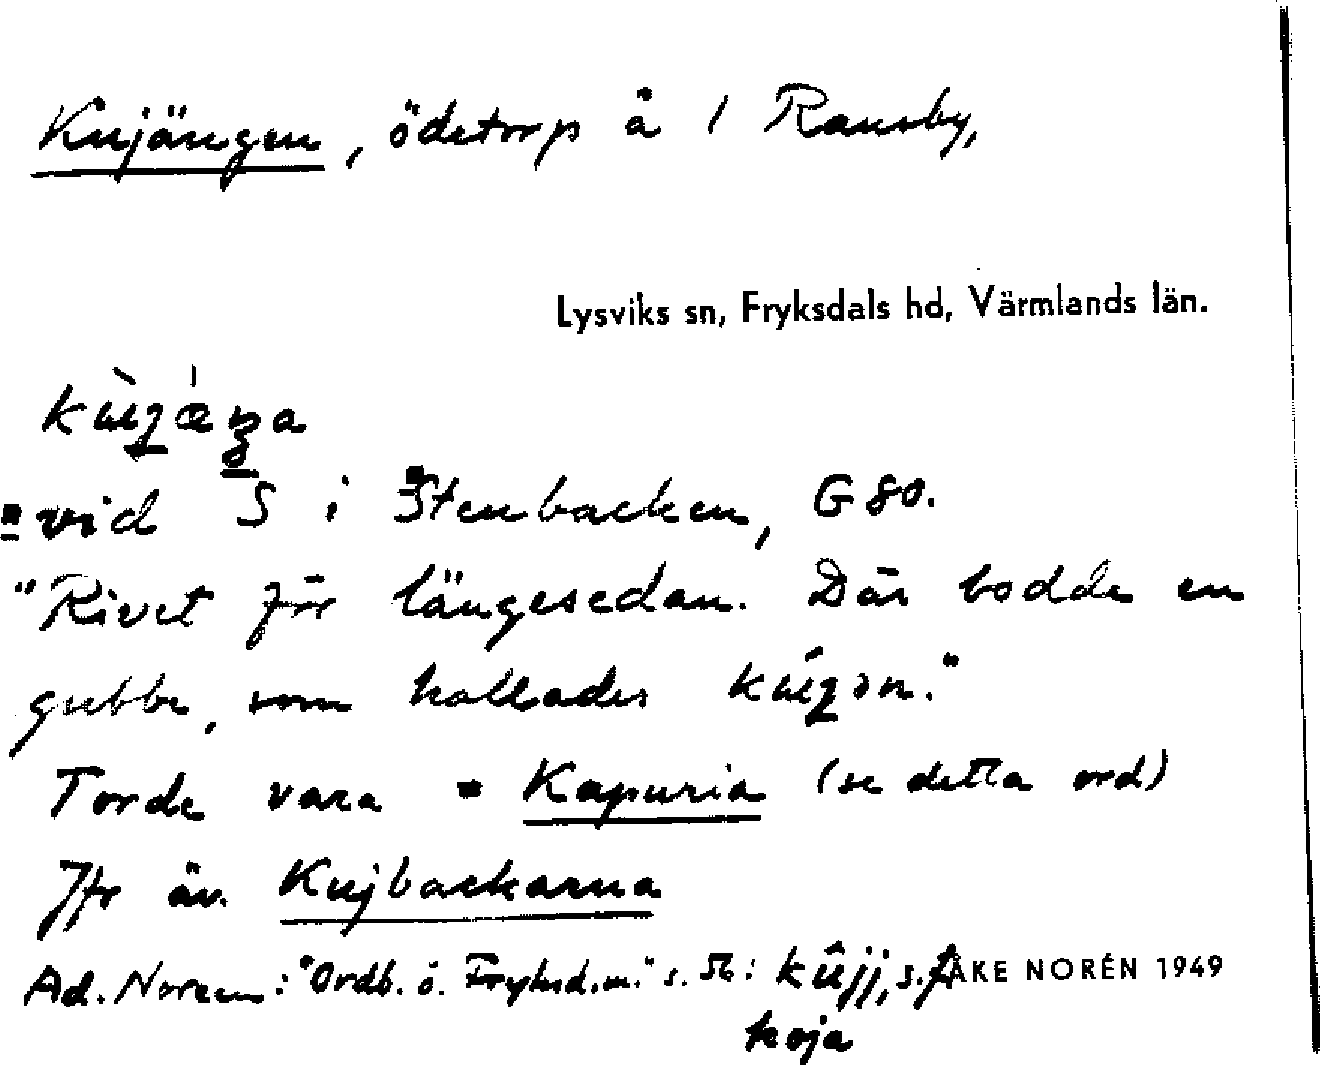 Kujängen, ödetorp å 1 Ransby,
Lysviks sn, Fryksdals hd, Värmlands län.
vid S i Stenbacken, G 80.
"Rivet för längesedan. Där bodde en
gubbe, som kallades
Torde vara = Kapuria (se detta ord)
Jfr äv. Kujbackarna
Ad. Noreen: "Ordb. ö. Fryksd.m." s. 56: kûjj, s.f. ÅKE NORÉN 1949
koja